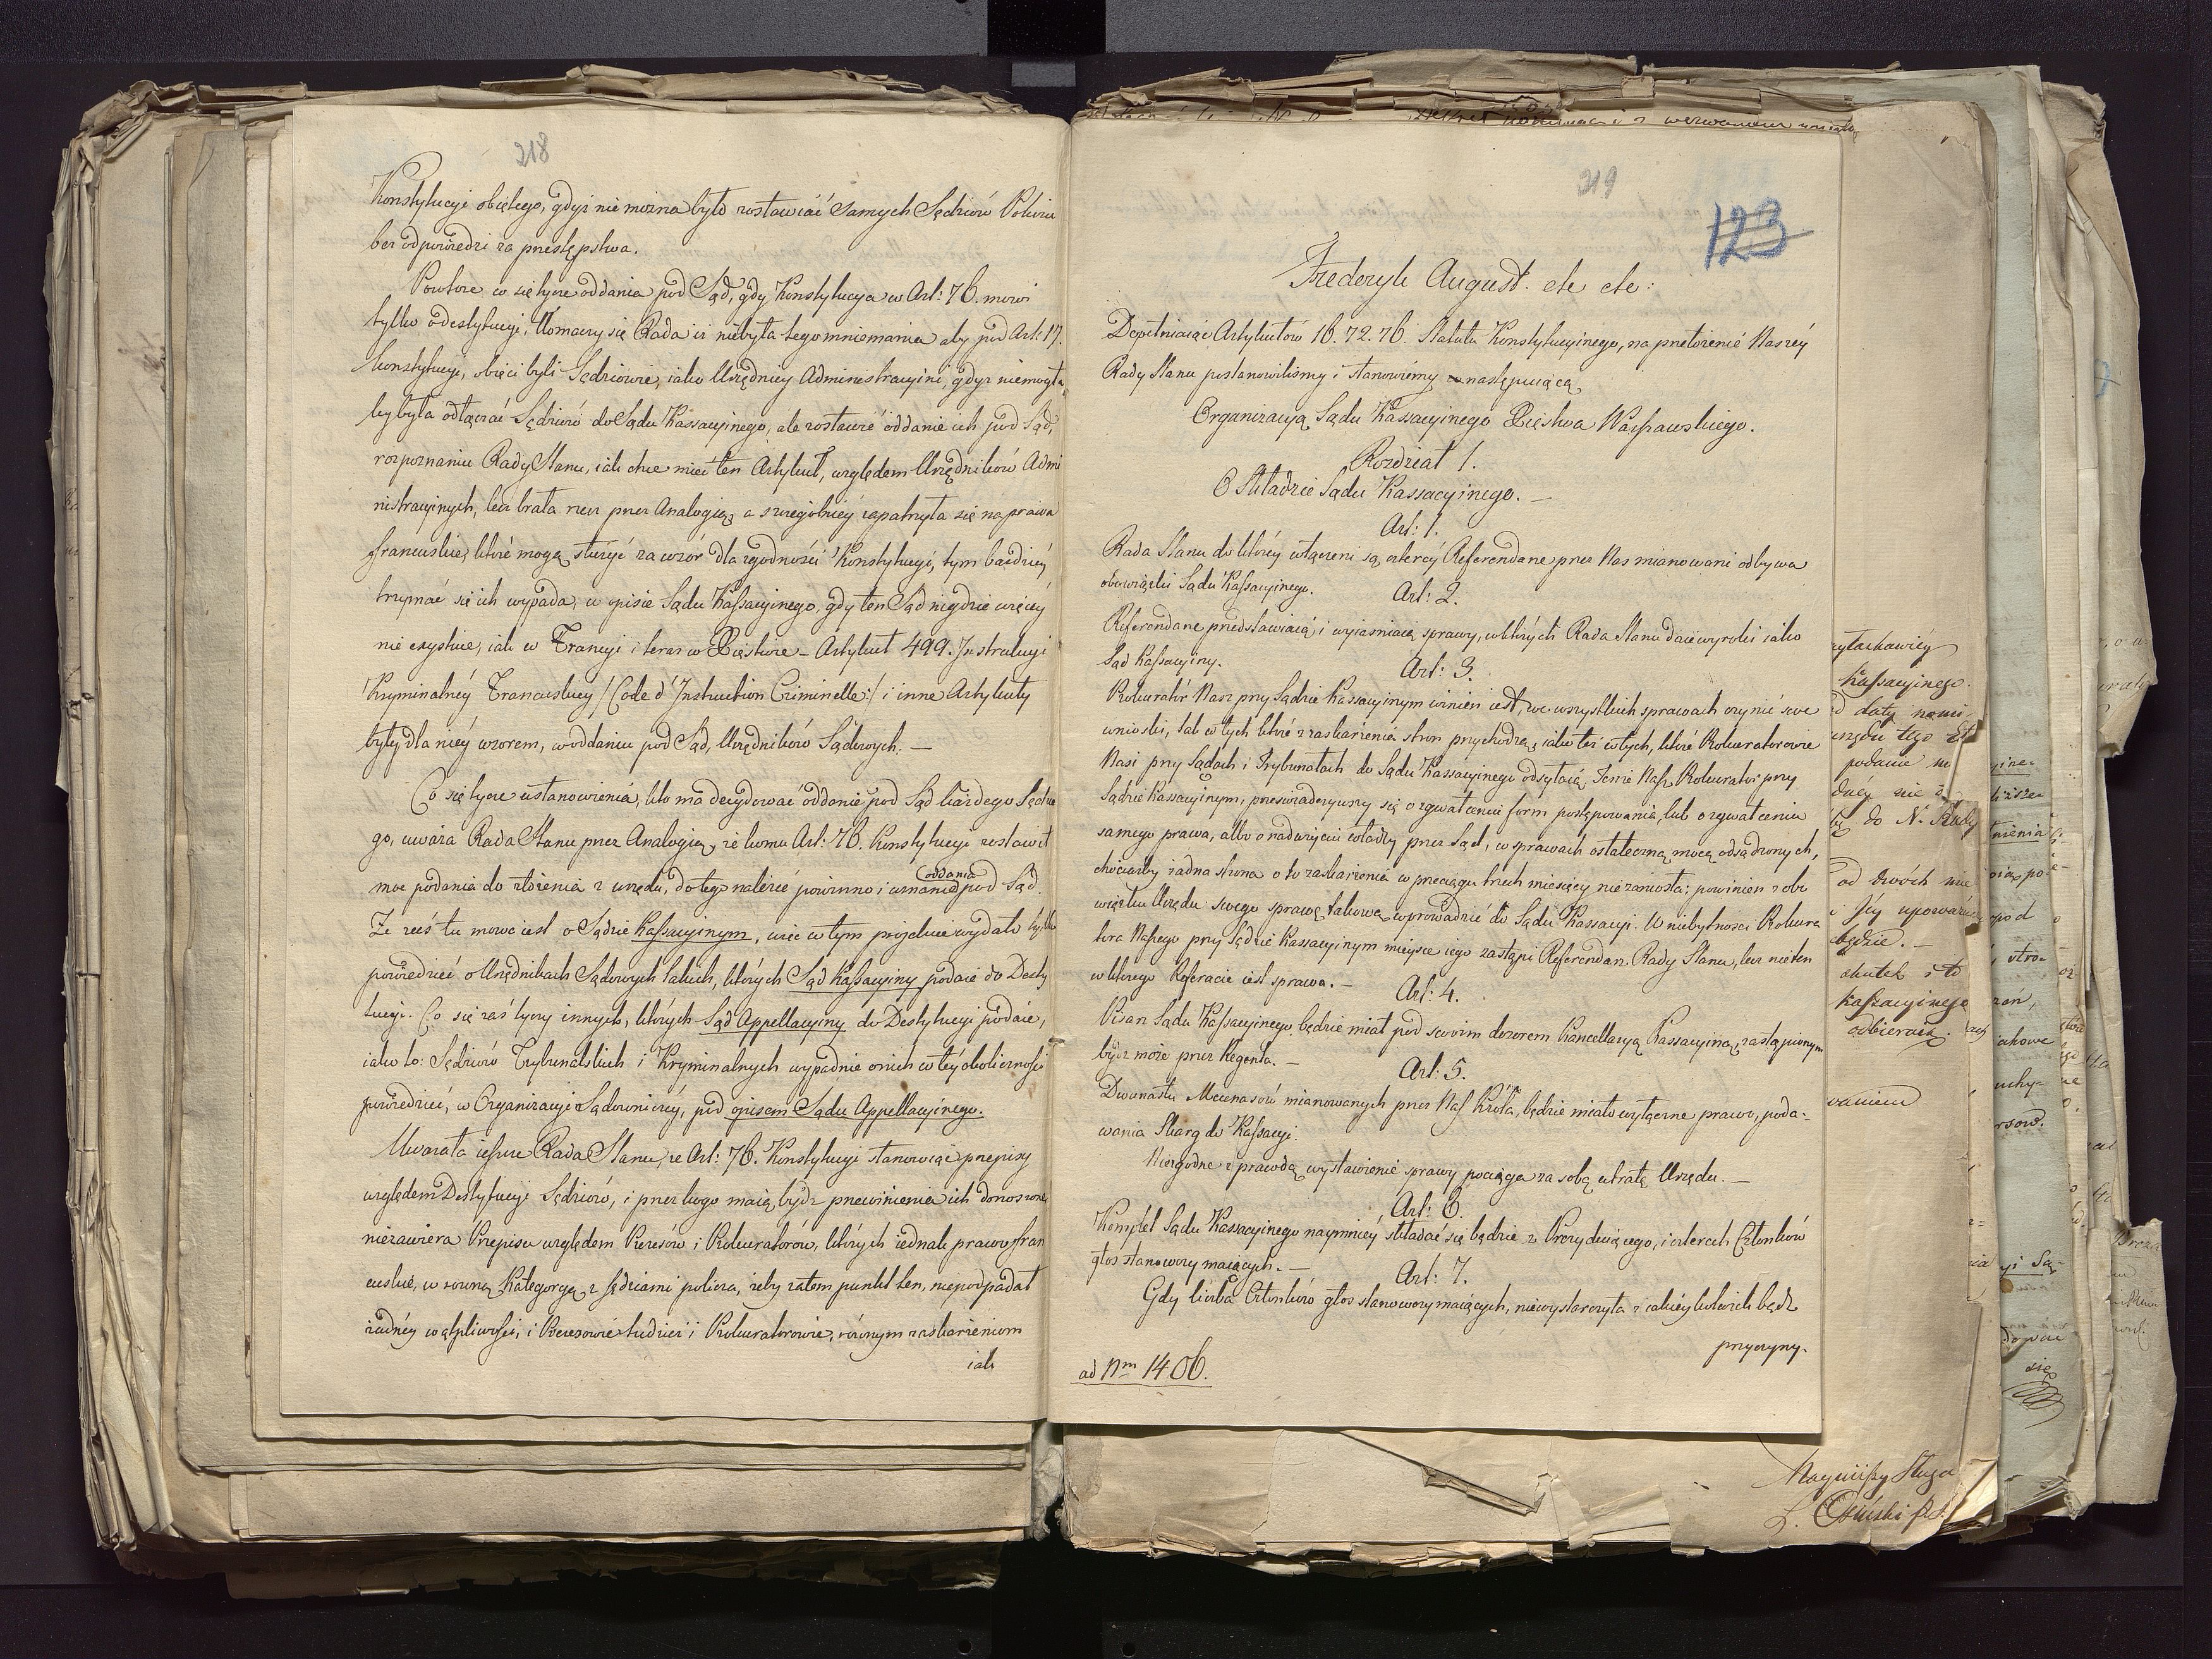 218
Konstytucyi obiętego, gdyż nie można było zostawiać samych Sędziów Pokoiu
bez odpowiedzi za przestępstwa.
Powtore co się tycze oddania pod Sąd, gdy Konstytucya w Art: 76. mowi
tylko o destytucyi, tłomaczy się Rada iż niebyła tego mniemania aby pod Art: 17.
Konstytucyi, obięci byli Sędziowie, iako Urzędnicy Administracyini, gdyż niemogła
by była odłączać Sędziów do Sądu Kassacyinego, ale zostawić oddanie ich pod Sąd,
rozpoznaniu Rady Stanu, iak chce mieć ten Artykuł, względem Urzędników Admi
nistracyinych, lecz brała rzecz przez Analogią, a szczególniey zapatryła się na prawa
francuskie, które mogą służyć za wzór dla zgodności Konstytucyi, tym bardziey
trzymać się ich wypada, w opisie Sądu Kassacyinego, gdy ten Sąd nigdzie więcey
nie exystuie, iak w Francyi i teraz w Xięstwie – Artykuł 499. Instrukcyi
Kryminalney Francuskiey /:Code d'Instruction Criminelle:/ i inne Artykuły
były dla niey wzorem, w oddaniu pod Sąd, Urzędników Sądowych. —
Co się tycze ustanowienia, kto ma decydować oddanie pod Sąd każdego Sędzie
go, uważa Rada Stanu przez Analogią, że komu Art: 76. Konstytucyi zostawił
moc podania do złożenia z urzędu, do tego należeć powinno i uznanie oddania pod Sąd.
Że zaś tu mowa iest o Sądzie Kassacyinym, więc w tym proiekcie wydało tylko
powiedzieć o Urzędnikach Sądowych takich, których Sąd Kassacyiny podaie do Desty
tucyi. Co się zaś tyczy innych, których Sąd Appellacyiny do Destytucyi podaie,
iako to: Sędziów Trybunalskich i Kryminalnych wypadnie o nich w tey okoliczności
powiedzieć, w Organizacyi Sądowniczey, pod opisem Sądu Appellacyinego.
Uważała ieszcze Rada Stanu, że Art: 76. Konstytucyi stanowiąc przepisy
względem Destytucyi Sędziów, i przez kogo maią bydź przewinienia ich donoszone,
niezawiera Przepisu względem Prezesów i Prokuratorów, których iednak prawo fran
cuskie, w rowną Kategoryą z Sędziami policza, żeby zatem punkt ten, niepodpadał
żadney wątpliwości, i Prezesowie tudzież i Prokuratorowie, równym zaskarżeniom
iak
219
123
Frederyk August. etc etc:
Dopełniaiąc Artykułów 16. 72. 76. Statutu Konstytucyinego, na przełożenie Naszey
Rady Stanu postanowilismy i stanowiemy następuiącą
Organizacyą Sądu Kassacyinego Xięstwa Warszawskiego.
Rozdział 1.
O Składzie Sądu Kassacyinego. —
Art: 1.
Rada Stanu do którey włączeni są czterey Referendarze przez Nas mianowani odbywa
obowiązki Sądu Kassacyinego.
Art: 2.
Referendarze przedstawiaią i wyiaśniaią sprawy, w których Rada Stanu daie wyroki iako
Sąd Kassacyiny.
Art: 3.
Prokurator Nasz przy Sądzie Kassacyinym winien iest, we wszystkich sprawach czynić swe
wnioski, tak w tych które z zaskarżenia stron przychodzą, iako też w tych, które Prokuratorowie
Nasi przy Sądach i Trybunałach do Sądu Kassacyinego odsyłaią. Tenże Nasz Prokurator przy
Sądzie Kassacyinym, przeswiadczywszy się o zgwałceniu form postępowania, lub o zgwałceniu
samego prawa, albo o nadużyciu władzy przez Sąd, w sprawach ostateczną mocą odsądzonych,
chociażby żadna strona o to zaskarżenia w przeciągu trzech miesięcy niezaniosła; powinien z obo
wiązku Urzędu swego sprawę takową wprowadzić do Sądu Kassacyi. W niebytności Prokura
tora Naszego przy Sądzie Kassacyinym mieysce iego zastąpi Referendarz Rady Stanu, lecz nie ten
w którego Referacie iest sprawa. —
Art: 4.
Pisarz Sądu Kassacyinego będzie miał pod swoim dozorem Kancellaryą Kassacyiną, zastąpionym
bydź może przez Regenta. —
Art: 5.
Dwunastu Mecenasów mianowanych przez Nas Króla, będzie miało wyłączne prawo, poda-
wania Skarg do Kassacyi.
Niezgodne z prawdą wystawienie sprawy pociąga za sobą utratę Urzędu. —
Art: 6.
Komplet Sądu Kassacyinego naymniey składać się będzie z Prezyduiącego, i czterech Członków
głos stanowczy maiących. —
Art: 7.
Gdy liczba Członków głos stanowczy maiących, niewystarczyła z iakieykolwiek bądź
przyczyny.
ad Nm 1406.
Kassacyinego.
podanie
do N. Rady
od dwóch
będzie. —
Kassacyinego
odbieraią.
Nayniższy Sługa
L. Osiński